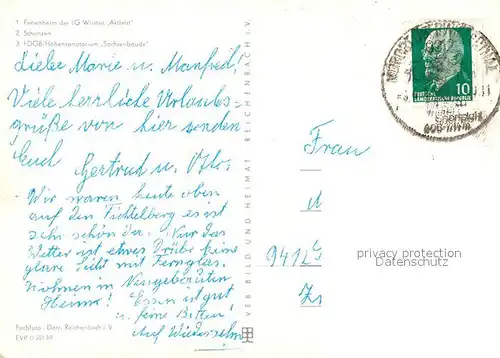 1. Ferienheim der IG Wismut „Aktivist"
2. Schanzen
3. FDGB-Höhensanatorium „Sachsenbaude"
Liebe Marie u. Manfred,
Viele herrliche Urlaubs-
grüße von hier senden
Euch
Gertrud u. Otto.
Wir waren heute oben
auf den Fichtelberg es ist
sehr schön da. Nur das
Wetter ist etwas Drübe keine
glare Sicht mit Fernglas
Wohnen in Neugebauten
Heime! Essen ist gut
u. feine Betten!
Auf Wiedersehn
Farbfoto: Darr, Reichenbach i. V.
EVP 0,20 M
VEB BILD UND HEIMAT REICHENBACH i. V.
DEUTSCHE
DEMOKRATISCHE REPUBLIK
10
Frau
9412
privacy protection
Datenschutz